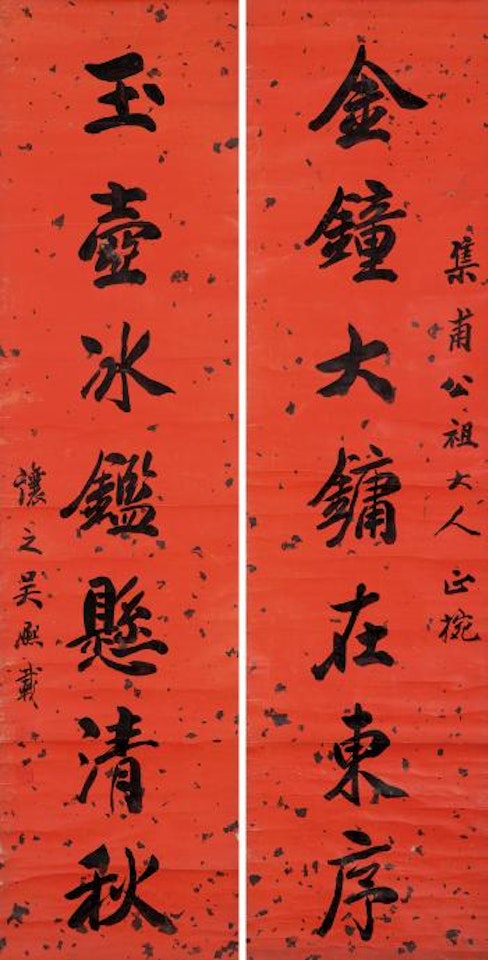 集甫公祖大人正挽
金鐘大鏞在東序
玉壺冰鑑懸清秋
讓之吳熙載